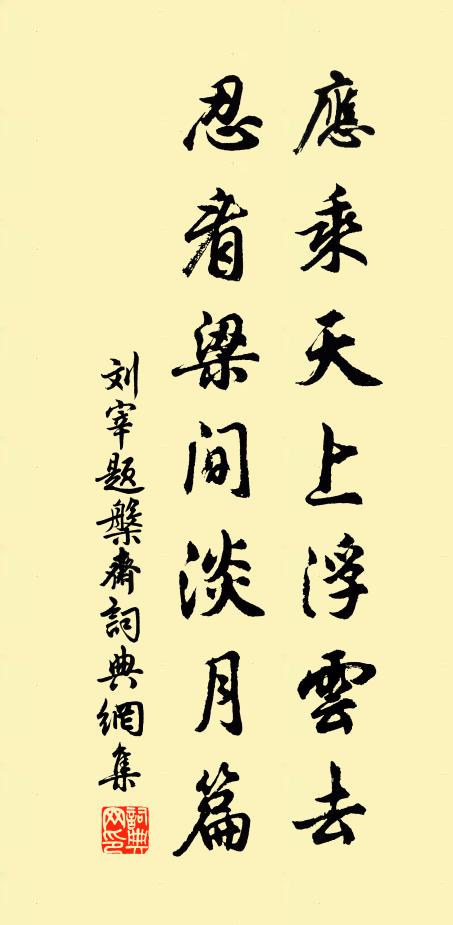 應乘天上浮雲去
忍看梁間淡月篇
刘宰題槃齋詞典網集
詞典網印